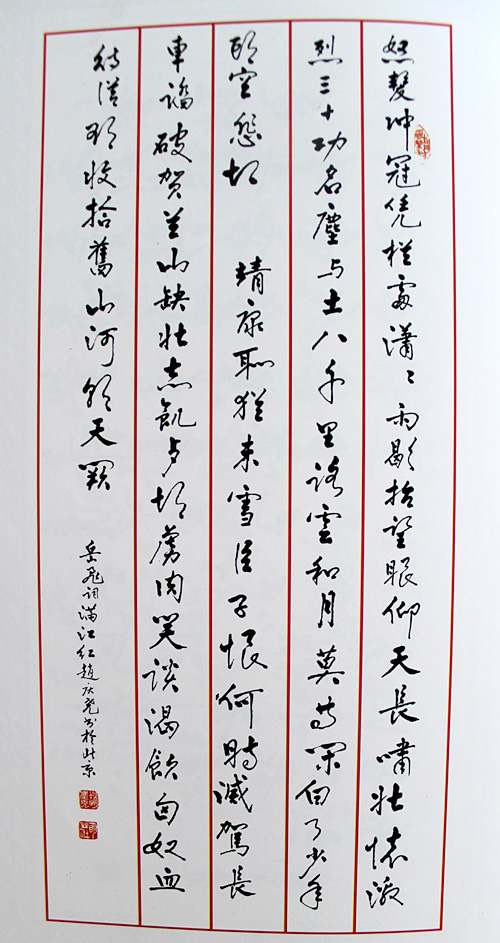 怒髮冲冠凭栏處瀟々雨歇抬望眼仰天長嘯壯懷激
烈三十功名塵与土八千里路雲和月莫等闲白了少年
頭空悲切 靖康恥猶未雪臣子恨何時滅駕長
車踏破贺兰山缺壯志飢歺胡虜肉笑談渴飲匈奴血
待從頭收拾舊山河朝天闕
岳飛词满江红趙庆尧书於北京